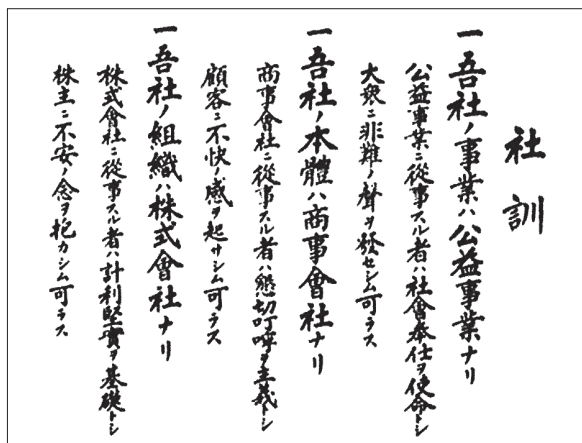 社訓
一吾社ノ事業ハ公益事業ナリ
公益事業ニ從事スル者ハ社會奉仕ヲ使命トシ
大衆ニ非難ノ聲ヲ發セシム可ラス
一吾社ノ本體ハ商事會社ナリ
商事會社ニ從事スル者ハ懇切叮嚀ヲ主義トシ
顧客ニ不快ノ感ヲ起サシム可ラス
一吾社ノ組織ハ株式會社ナリ
株式會社ニ從事スル者ハ計利堅實ヲ基礎トシ
株主ニ不安ノ念ヲ抱カシム可ラス